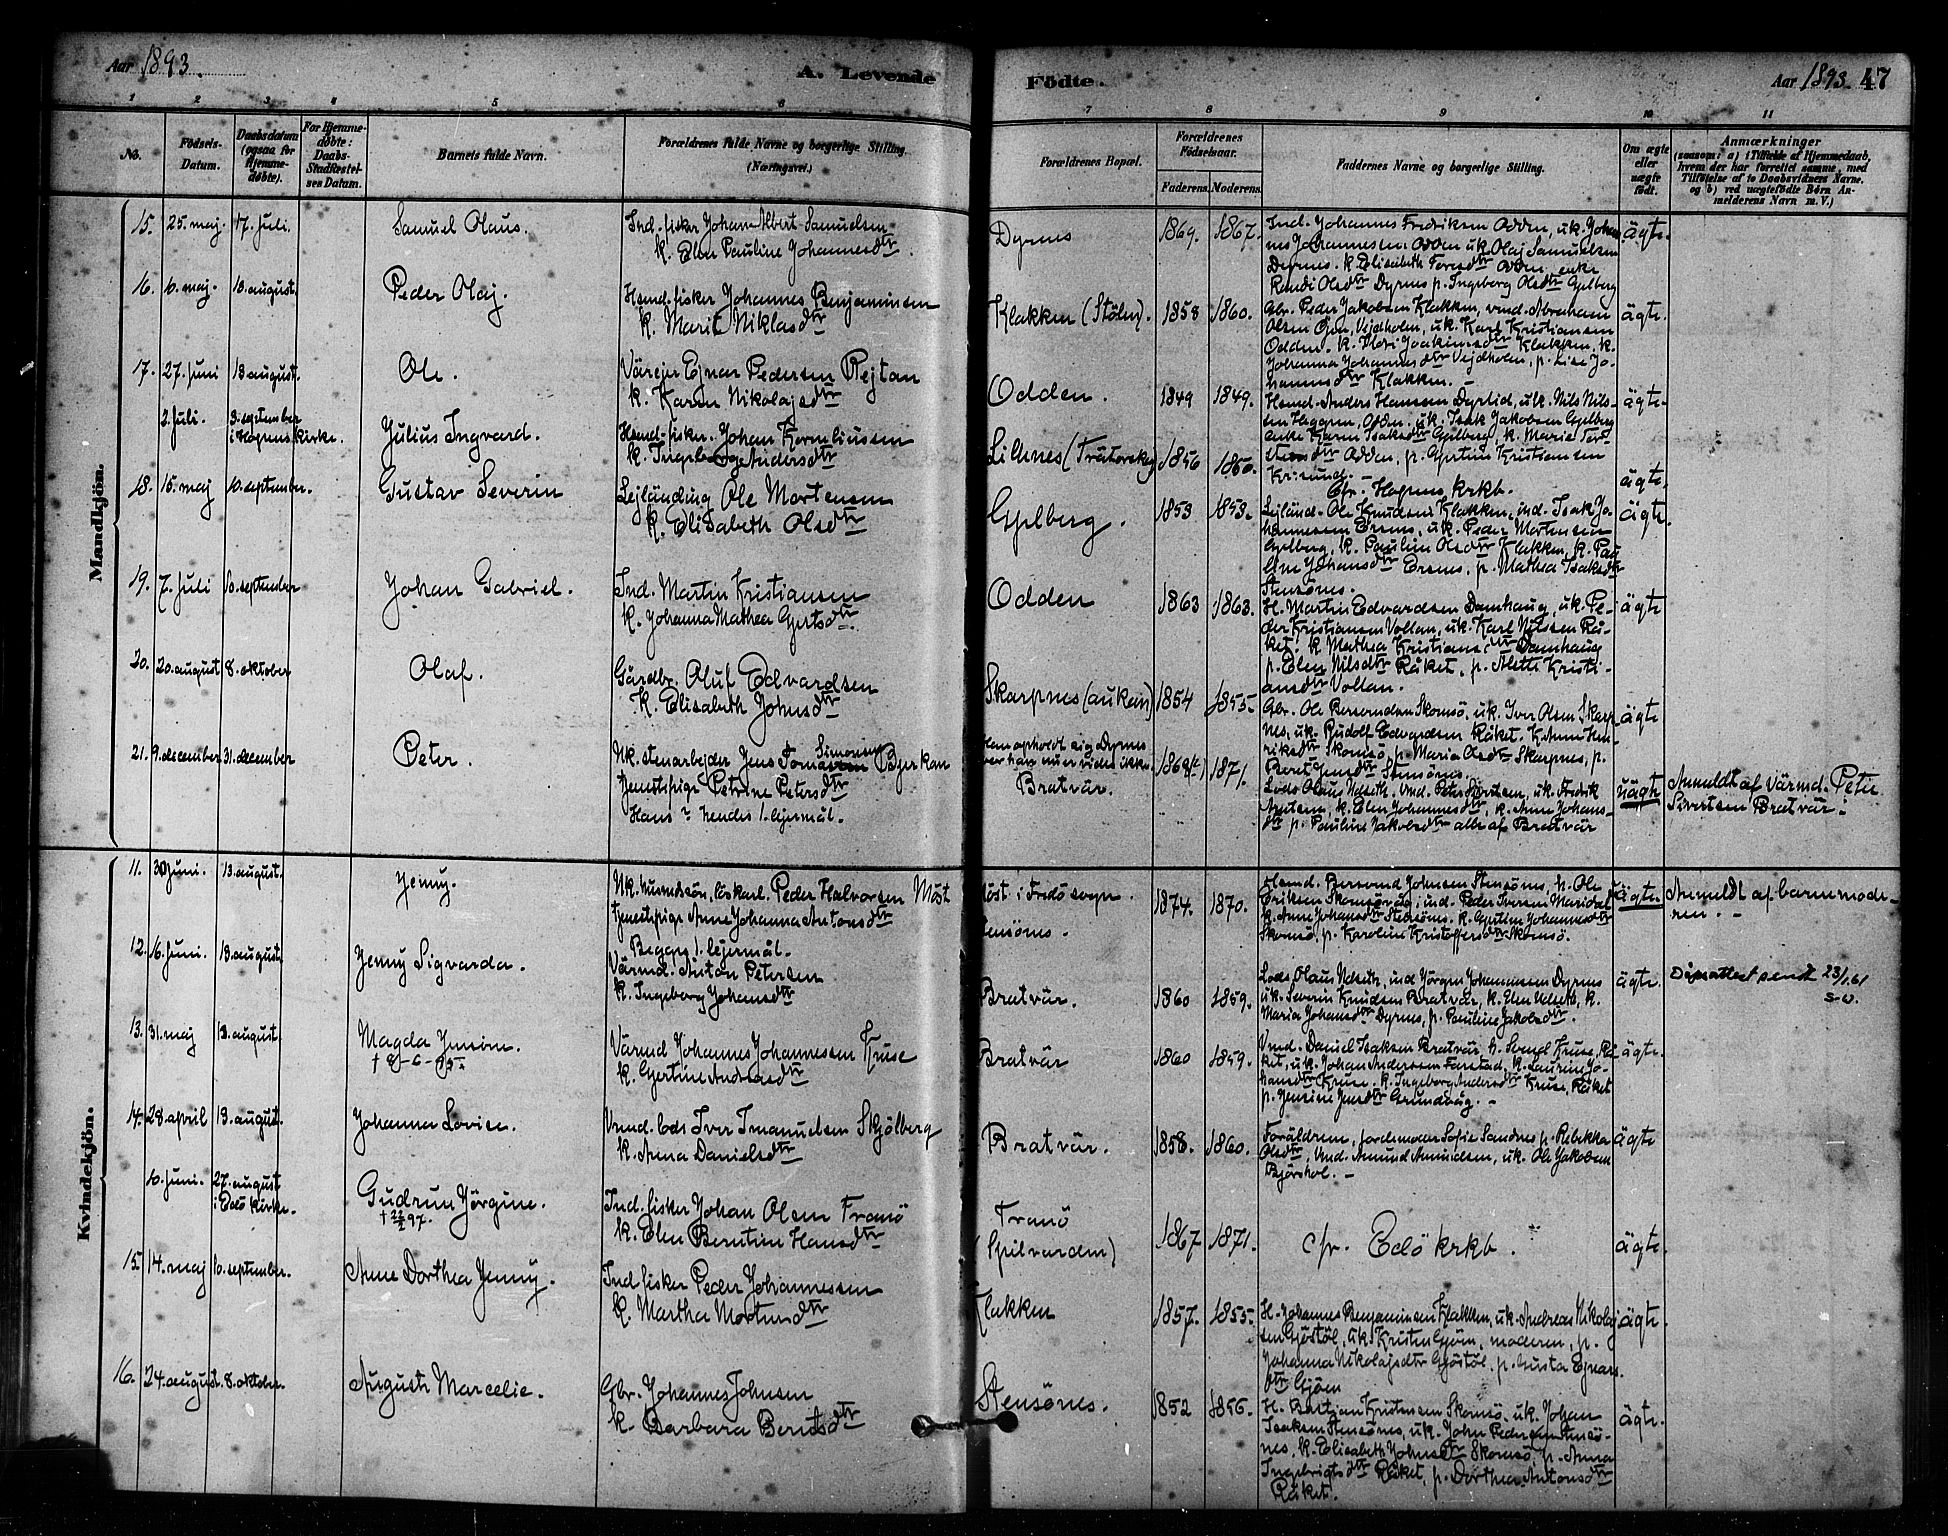 Aar 1893.
A. Levende
Födte.
Aar 1893. 47
1 2 3 4 5 6 7 8 9 10 11
No.
Födsels-Datum.
Daabsdatum (ogsaa for Hjemme-döbte).
For Hjemme-döbte: Daabs-Stadfæstel-ses Datum.
Barnets fulde Navn.
Forældrenes fulde Navne og borgerlige Stilling. (Næringsvei.)
Forældrenes Bopæl.
Forældrenes Födselsaar.
Faderens. Moderens.
Faddernes Navne og borgerlige Stilling.
Om ægte eller uægte födt.
Anmærkninger
(saasom: a) i Tilfælde af Hjemmedaab,
hvem der har forrettet samme, med
Tilföielse af to Daabsvidners Navne.
og b) ved uægtefödte Börn An-
melderens Navn m. V.)
Mandkjön.
15. 25. maj. 17. juli. Samuel Olaus. Ind. fisker Johan Albert Samuelsen
k. Elen Pauline Johannesdtr.
Dyrnes 1869. 1867. ägte.
Ind. Johannes Fredriksen Odden, uk. Johan
nes Johannesen Odden uk. Olaj Samuelsen
Dyrnes. k. Elisabeth Odden, enke
Randi Olsdtr Dyrnes p. Ingeborg Olsdtr Gjelberg
16. 6. maj. 13. august. Peder Olaj. Hsmd. fisker Johannes Benjaminsen
k. Marit Niklasdtr
Klakken (Stölen). 1858 1860. ägte.
Gbr. Peder Jakobsen Klakken, vmd. Abraham
Olsen Vejdholm, uk. Karl Kristiansen
Odden. k. Joakimsdtr Klakken, k.
Johanna Johannesdtr Vejdholm, p. Lise Jo-
hannesdtr Klakken. –
17. 27. juni 13. august. Ole. Värejer Ejnar Pedersen Rejtan
k. Karen Nikolajsdtr
Odden. 1849 1849. ägte.
Hsmd. Anders Hansen Dyrlid, uk. Nils Nils-
sen Haggen, Odden. uk. Isak Jakobsen Gjelberg
enke Karen Isaksdtr Gjelberg, k. Marie
Odden, p. Gjertin Kristiansen
Kr.sund. –
2. juli. 3. september i Hopens kirke. Julius Ingvard. Hsmd. fisker. Johan Korneliussen
k. Ingeborg Andersdtr
1856 1850. Cfr. Hopens krkb. ägte.
18. 15. maj 10. september. Gustav Severin Lejländing Ole Mortensen
k. Elisabeth Olsdtr
Gjelberg. 1853 1853. ägte.
Lejländ. Ole Knudsen Klakken, ind. Isak Jo-
hannessen Ersnes, uk. Peder Mortensen
Gjelberg, k. Pauline Olsdtr Klakken, k. Pau-
line Johansdtr Ersnes, p. Mathea Isaksdtr
Stensönes.
19. 7. juli 10. september Johan Gabriel. Ind. Martin Kristiansen
k. Johanna Mathea Gjertsdtr.
Odden 1863 1863. ägte
H. Martin Edvardsen Damhaug, uk. Pe-
der Kristiansen Vollan, uk. Karl Nilssen Rå-
ket. k. Mathea Kristiansdtr Damhaug
p. Elen Nilsdtr Råket, p. Alette Kristi-
ansdtr Vollan.
20. 20. august 8. oktober Olaf. Gårdbr. Oluf Edvardsen
k. Elisabeth Johnsdtr
Skarpnes (aukan) 1854 1855. ägte
Gbr. Ole Bersvendsen Skomsö. uk. Iver Olsen Skarp-
nes, uk. Rudolf Edvardsen Råket. k. Anne Hen-
riksdtr Skomsö, p. Maria Olsdtr Skarpnes, p.
Beret Jensdtr Stensönes.
21. 9. december 31. december Peter. Uk. stenarbejder Jens Simonsen Bjerkan
Tjenestepige Petrine Petersdtr
Hans ? hendes 1. lejermål.
Han opholdt sig Dyrnes
hvor han nu er vides ikke.
Bratvär. 1871. uägte
Lods Olaus Udseth. vmd. Peter Sivertsen, uk. Fredrik
Knutsen, k. Elen Johannesdtr, k. Anne Johans-
dtr p. Pauline Jakobsdtr alle af Bratvär
Anmeldt af värmd. Peter
Sivertsen Bratvär.
Kvindekjön.
11. 30 juni. 13. august. Jenny. Uk. husmdssön, löskarl. Peder Halvorsen Möst
tjenestepige Anne Johanna Antonsdtr
Begges 1. lejermål.
Möst i Fredö sogn.
Stensönes. 1874. 1870. uägte
Hsmd. Bersvend Johnsen Stensönes, h. Ole
Eriksen Skomsövåg, ind. Peder Iversen Maridal
k. Anne Johansdtr Stensönes. k. Gjertine Johannesdtr
Skomsö, p. Karoline Kristoffersdtr Skomsö.
Anmeldt af barnemode-
ren. –
12. 16. juni. 13. august. Jenny Sigvarda. Värmd. Anton Petersen
k. Ingeborg Johansdtr
Bratvär. 1860 1859. ägte.
Lods Olaus Udseth, ind Jörgen Johannessen Dyrnes
uk. Severin Knudsen Bratvär, k. Elen Udseth, k.
Maria Johansdtr Dyrnes, p. Pauline Jakobsdtr.
Dåpsattest sendt 23/1.61
13. 31. maj 13. august. Magda Jensine.
† 8–6–95.
Värmd Johannes Johannessen Kruse
k. Gjertine Andersdtr
Bratvär 1860 1859. ägte.
Vmd. Daniel Isaksen Bratvär, h. Svend Kruse, Rå-
ket, uk. Johan Andersen Farstad, k. Laurine Jo-
hansdtr Kruse. k. Ingeborg Andersdtr Kruse, Råket
p. Jensine Jensdtr Grundvåg. –
14. 28. april 13. august. Johanna Lovise. Vmd. lods Iver Imanuelsen Skjölberg
k. Anna Danielsdtr
Bratvär. 1858. 1860. ägte
Foräldrene, jordemoder Sofie Sandnes p. Rebekka
Olsdtr, Vmd. Amund Amundsen, uk. Ole Jakobsen
Björshol. –
10. juni. 27. august i Edö kirke. Gudrun Jörgine.
Ind. fisker Johan Olsen Tranö
k. Elen Berntine Hansdtr
Tranö
(Spilvarden) 1867 1871. cfr. Edö krkb. ägte.
15. 14. maj 10. september. Anne Dorthea Jenny. Ind fisker Peder Johannessen
k. Martha Mortensdtr
Klakken 1857. 1855. ägte
H. Johannes Benjaminsen Klakken, uk. Andreas Nikolaj
sen Gjöstöl, uk. Kristen Gjöen, moderen, p.
Johanna Nikolajsdtr Gjöstöl, p. Gusta Ejnars
dtr Gjöen
16. 24. august. 8. oktober. Auguste Marcelie. Gbr. Johannes Johnsen
k. Barbara Berntsdtr
Stensönes. 1852 1856. ägte.
H. Bastian Kristensen Skomsö. uk. Johan
Isaksen Stensönes, uk. John Pedersen Stensö-
nes. k. Elisabeth Johnsdtr Skomsö, p. Anna
Ingebrigtsdtr Råket, p. Dorthea Antonsdtr
Råket.